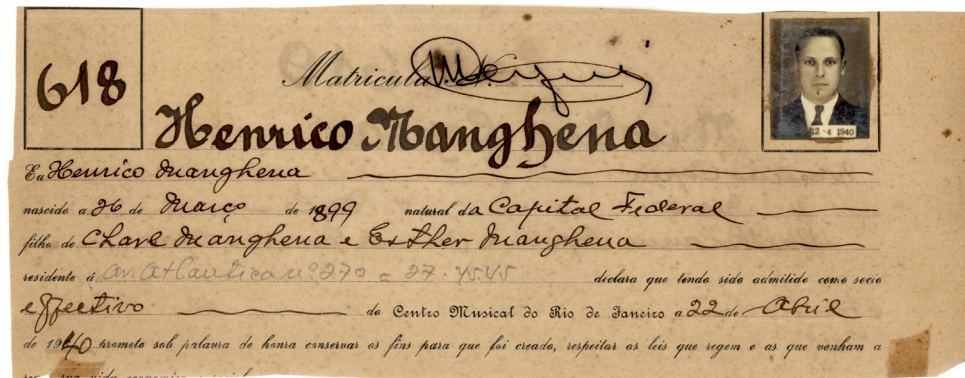 618
Matricula N.
12-4 1940
Henrico Manghena
Eu Henrico Manghena
nascido a 26 de Março de 1899 natural da Capital Federal
filho de Charl Manghena e Esther Manghena
residente á Av. Atlantica nº 270 = 27.4545
declara que tendo sido admitido como socio
effectivo do Centro Musical do Rio de Janeiro a 22 de Abril
de 1940 prometo sob palavra de honra conservar os fins para que foi creado, respeitar as leis que regem e as que venham a